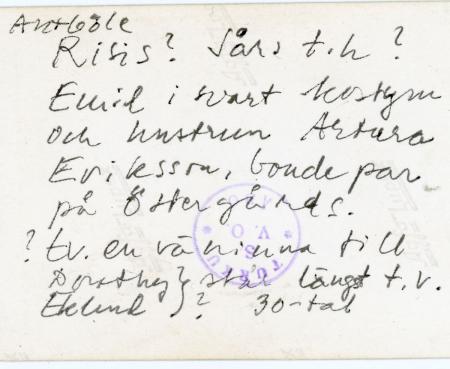 Antböle
Risis? Lars t.h?
Emid i svart kostym
och hustrun Artura
Eriksson, bonde par
på Östergårds.
? t.v. en väninna till
Dorothy } står längst t.v.
Eklund } ? 30-tal
TURKU
V.O.